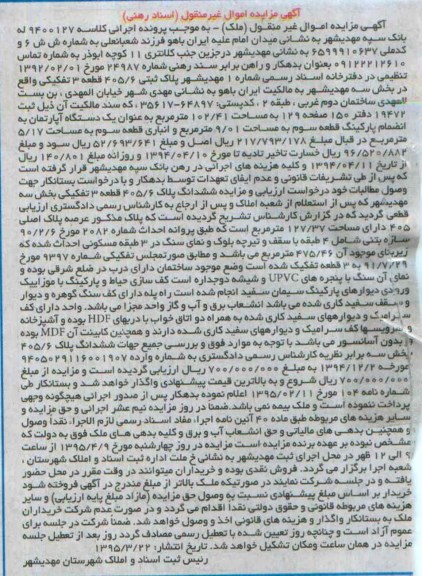 آگهی مزایده اموال غیرمنقول (اسناد رهنی)
آگهی مزایده اموال غیر منقول (ملک) - به موجب پرونده اجرائی کلاسه ۹۴۰۰۱۲۷ له
بانک سپه مهدیشهر به نشانی میدان امام علیه ایران باهو فرزند شعبانعلی به شماره ش ش ۶ و
کدملی ۶۵۹۹۹۱۰۶۳۷ به نشانی مهدیشهر درجزین جنب کلانتری ۱۱ کوچه ابوذر به شماره تماس
۰۹۱۲۲۳۱۲۶۱۰ بعنوان بدهکار و راهن برابر سند رهنی شماره ۲۴۹۸۷ مورخ ۱۳۹۲/۰۲/۰۱
تنظیمی در دفترخانه اسناد رسمی شماره ۱ مهدیشهر پلاک ثبتی ۴۰۵/۶ قطعه ۳ تفکیکی واقع
در بخش سه مهدیشهر به مالکیت ایران باهو به نشانی مهدی شهر خیابان المهدی، بن بست
المهدی ساختمان دوم غربی، طبقه ۲، کدپستی: ۶۴۸۹۷-۳۵۶۱۷ که سند مالکیت آن ذیل ثبت
۱۹۴۷۲ دفتر ۱۵۰ صفحه ۱۲۹ به مساحت ۱۰۲/۴۱ مترمربع به عنوان یک دستگاه آپارتمان به
انضمام پارکینگ قطعه سوم به مساحت ۹/۰۱ مترمربع و انباری قطعه سوم به مساحت ۵/۱۷
مترمربع در قبال مبلغ ۲۱۷/۷۹۳/۱۷۸ ریال اصل و مبلغ ۵۲/۶۹۳/۶۴۱ ریال سود و مبلغ
۹۶/۵۲۰/۸۸۲ ریال خسارت تاخیر تادیه تا مورخ ۱۳۹۴/۰۴/۱۰ و روزانه مبلغ ۱۴۰/۸۰۱ ریال
از تاریخ ۱۳۹۴/۰۴/۱۱ و کلیه هزینه های اجرائی در رهن بانک سپه مهدیشهر قرار گرفته است
که پس از طی تشریفات قانونی و عدم ایفای تعهدات توسط بدهکار و با درخواست بستانکار جهت
وصول مطالبات خود درخواست ارزیابی و مزایده ششدانگ پلاک ۴۰۵/۶ قطعه ۳ تفکیکی بخش سه
مهدیشهر که پس از استعلام از شعبه املاک و پس از ارجاع به کارشناس رسمی دادگستری ارزیابی
قطعی گردید که در گزارش کارشناس تشریح گردیده است که پلاک مذکور عرصه پلاک اصلی
۴۰۵ دارای مساحت ۱۲۷/۳۷ مترمربع است که طبق پروانه احداث شماره ۲۰۸۲ مورخ ۹۰/۲/۶
سازه بتنی شامل ۴ طبقه با سقف و تیرچه بلوک و نمای سنگ در ۳ طبقه مسکونی احداث شده که
زیربنای موجود آن ۴۷۵/۴۶ مترمربع می باشد و مطابق صورتمجلس تفکیکی شماره ۹۳۹۷ مورخ
۹۱/۷/۲۹ به ۳ قطعه تفکیک شده است وضع موجود ساختمان دارای درب در ضلع شرقی بوده و
نمای آن سنگ با پنجره های UPVC و شیشه دوجداره است کف سازی حیاط و پارکینگ با موزاییک
ورودی دیوارهای پارکینگ سیمان سفید انجام شده است راه پله دارای کف سنگ گوهره و دیوار
و سقف سفید کاری شده می باشد انشعاب برق و آب و گاز واحد مجزا می باشد. واحد دارای کف
سرامیک و دیوارهای سفید کاری شده به همراه دو اتاق خواب با دربهای HDF بوده و آشپزخانه
و سرویسها کف سرامیک و دیوارههای سفید کاری شده دارند و همچنین کابینت آن MDF بوده
و بدون آسانسور می باشد با توجه به موارد فوق و بررسی جمیع جهات ششدانگ پلاک ۴۰۵/۶
بخش سه برابر نظریه کارشناس رسمی دادگستری به شماره وارده ۹۴۰۵۰۲۹۱۱۶۰۰۱۹۰۷
مورخه ۱۳۹۴/۱۲/۲ به مبلغ ۷۰۰/۰۰۰/۰۰۰ ریال ارزیابی گردیده است و مزایده از مبلغ
۷۰۰/۰۰۰/۰۰۰ ریال شروع و به بالاترین قیمت پیشنهادی واگذار خواهد شد و بستانکار طی
شماره نامه ۱۰۴ مورخ ۱۳۹۵/۰۲/۱۱ اعلام نموده بدهکار پس از صدور اجرائی هیچگونه وجهی
پرداخت ننموده است و ملک بیمه نمی باشد. ضمنا در روز مزایده نیم عشر اجرائی و حق مزایده و
سایر هزینه های مربوطه طبق ماده ۴۰ آئین نامه اجرا، مفاد اسناد رسمی لازم الاجرا، نقدا وصول
و همچنین بدهی های مالیاتی و حق انشعاب آب و برق و کلیه بدهی های ملک فوق به دولت که
مشخص نبوده بر عهده برنده مزایده است مزایده در روز چهارشنبه مورخ ۱۳۹۵/۴/۹ از ساعت
۹ الی ۱۲ ظهر در محل اجرای ثبت مهدیشهر به نشانی خ ملت اداره ثبت اسناد و املاک شهرستان،
شعبه اجرا برگزار می گردد. فروش نقدی بوده و خریداران میتوانند در وقت مقرر در محل حضور
یافته و در جلسه شرکت نمایند در صورتیکه ملک بالاتر از مبلغ مندرج در آگهی فروخته شود
خریدار بر اساس مبلغ پیشنهادی نسبت به وصول حق مزایده (مازاد مبلغ پایه ارزیابی) و سایر
هزینه های مربوطه قانونی و حقوق دولتی نقدا اقدام می گردد و در صورت عدم شرکت خریداران
ملک به بستانکار واگذار و هزینه های قانونی اخذ و وصول خواهد شد. ضمنا شرکت در جلسه برای
عموم آزاد است و چنانچه روز تعیین شده با تعطیل رسمی مصادف گردد روز بعد از تعطیل جلسه
مزایده در همان ساعت ومکان تشکیل خواهد شد. تاریخ انتشار: ۱۳۹۵/۳/۲۲
رئیس ثبت اسناد و املاک شهرستان مهدیشهر